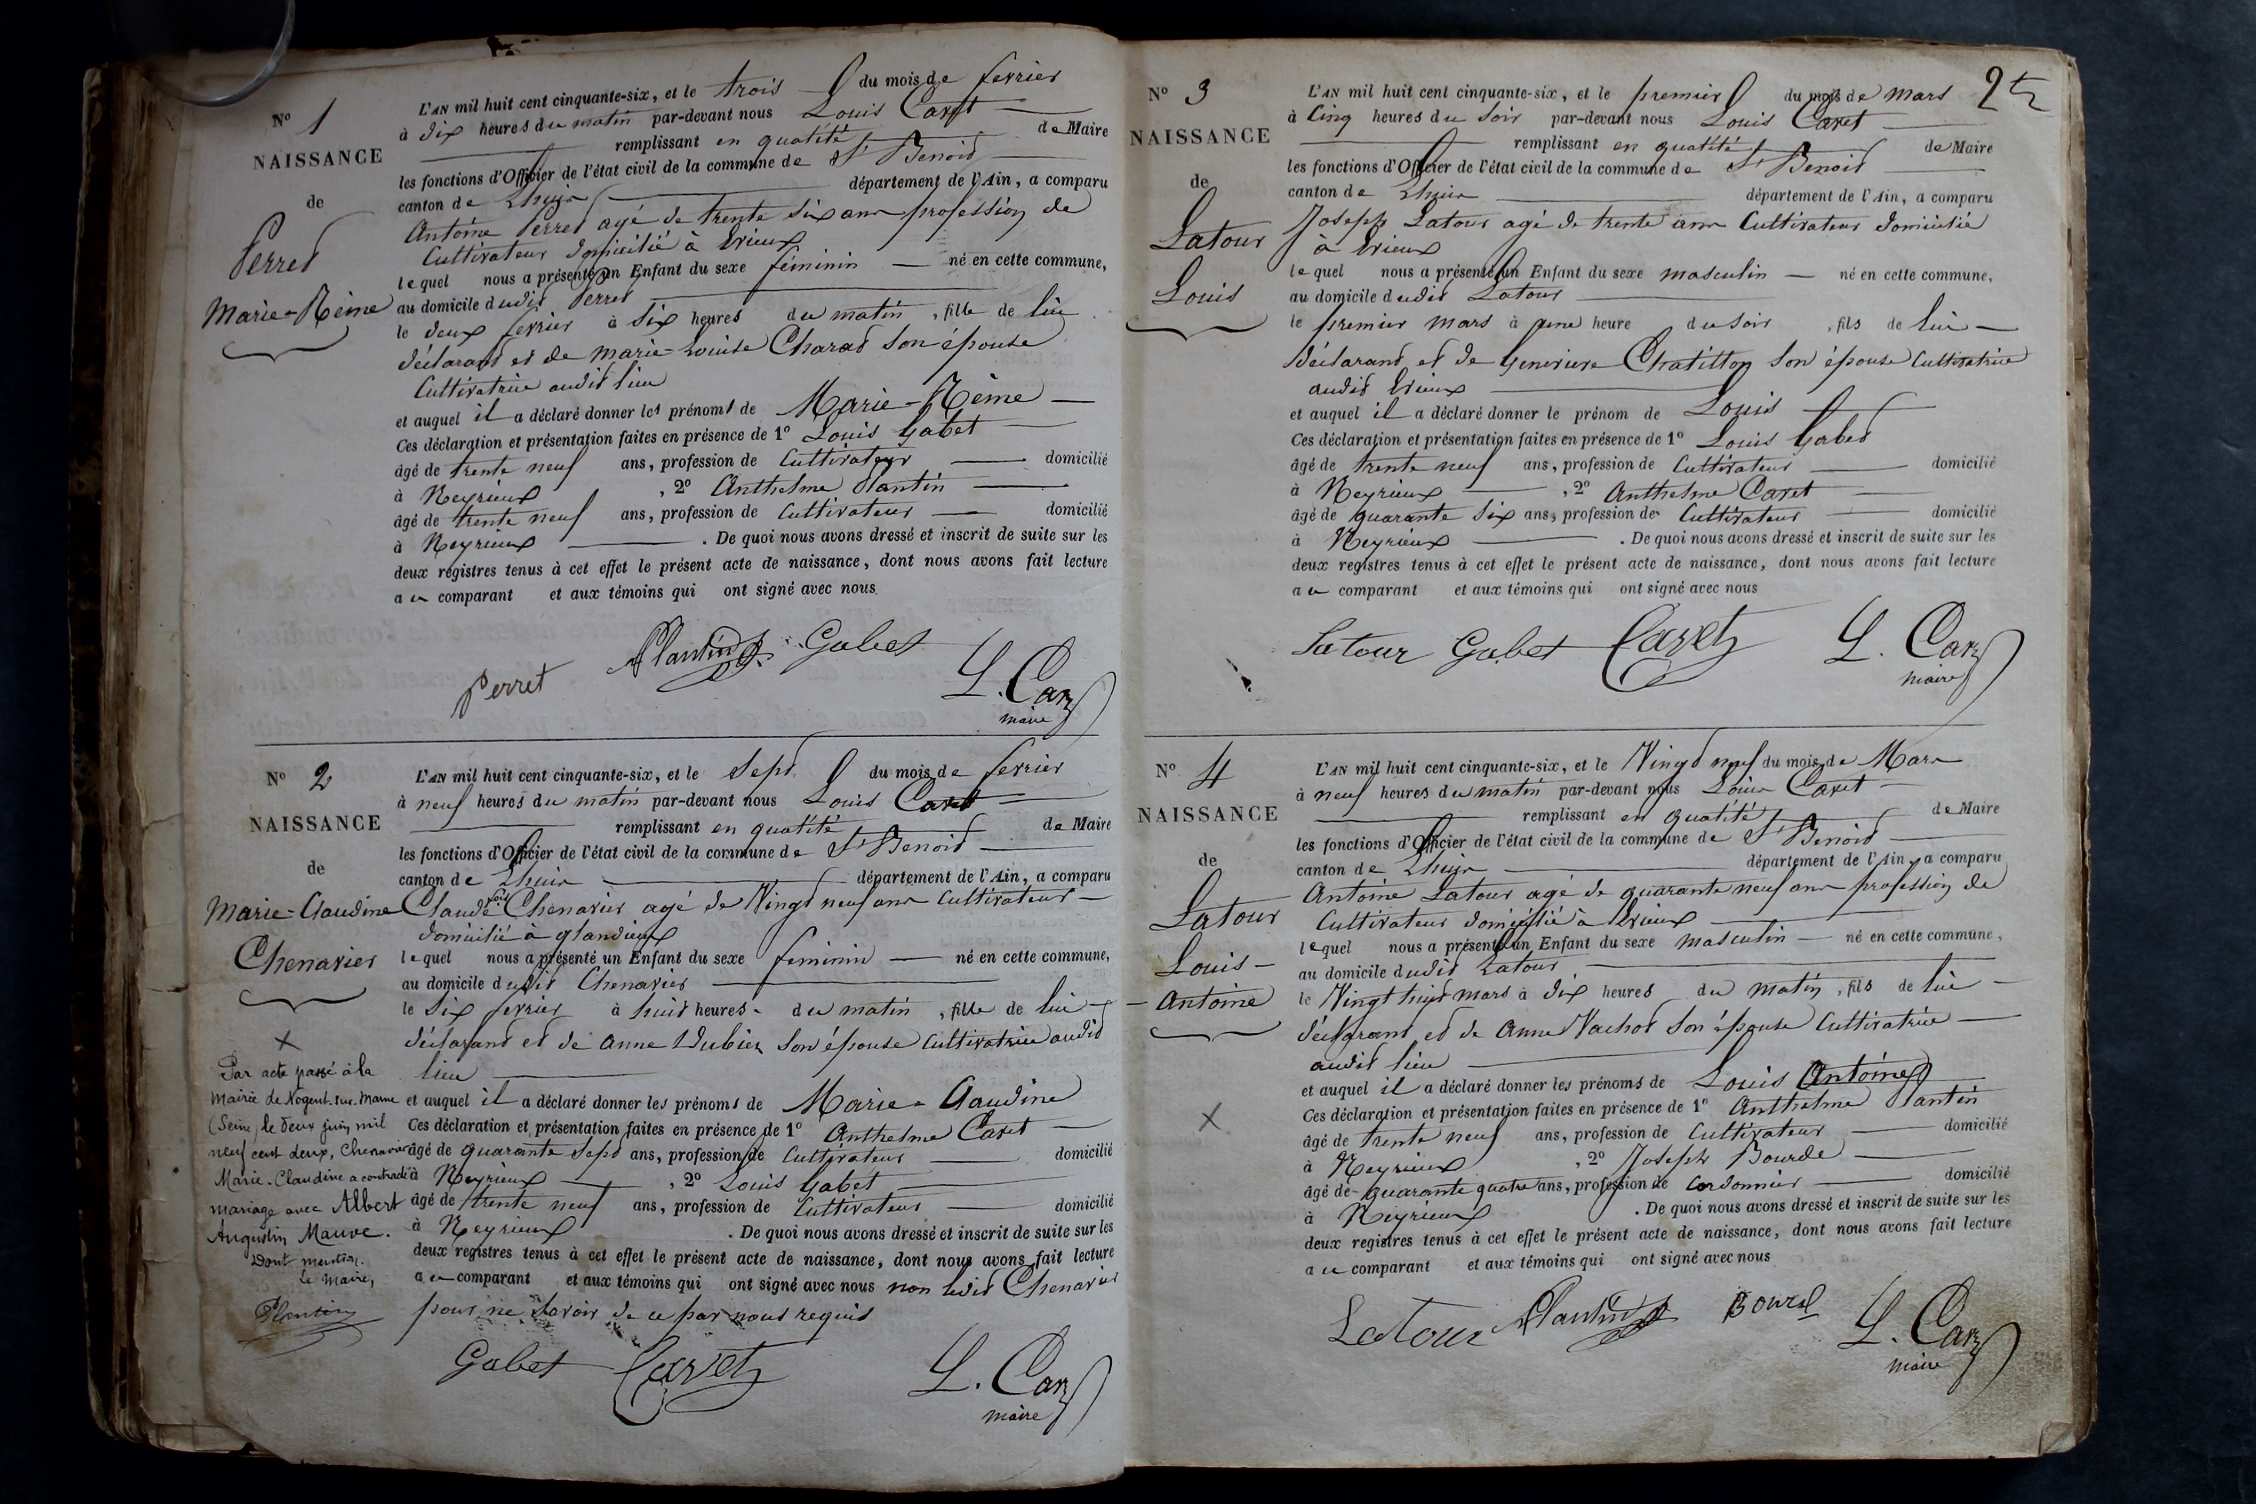 N° 1
NAISSANCE
de
Perret
Marie-Rème
L'AN mil huit cent cinquante-six, et le trois du mois de fevrier
à dix heures du matin par-devant nous Louis Caret
remplissant en qualité de Maire
les fonctions d'Officier de l'état civil de la commune de St Benoid
canton de Lhuis département de l'Ain, a comparu
Antoine Perret agé de trente six ans profession de
Cultivateur domicilié à
lequel nous a présenté un Enfant du sexe féminin né en cette commune,
au domicile dudit Perret
le deux fevrier à six heures du matin, fille de lui
déclarant et de marie-Louise Charat son épouse
Cultivatrice audit lieu
et auquel il a déclaré donner les prénoms de Marie-Rème
Ces déclaration et présentation faites en présence de 1° Louis Gabet
âgé de trente neuf ans, profession de Cultivateur domicilié
à Neyrieux, 2° Anthelme Plantin
âgé de trente neuf ans, profession de Cultivateur domicilié
à Neyrieux. De quoi nous avons dressé et inscrit de suite sur les
deux registres tenus à cet effet le présent acte de naissance, dont nous avons fait lecture
au comparant et aux témoins qui ont signé avec nous
Perret Plantin Gabet L. Car
maire
N° 2
NAISSANCE
de
Marie-Claudine
Chenavier
L'AN mil huit cent cinquante-six, et le Sept du mois de fevrier
à neuf heures du matin par-devant nous Louis Caret
remplissant en qualité de Maire
les fonctions d'Officier de l'état civil de la commune de St Benoid
canton de Lhuis département de l'Ain, a comparu
Claude Chenavier agé de Vingt neuf ans Cultivateur
domicilié à glandieux
lequel nous a présenté un Enfant du sexe féminin né en cette commune,
au domicile dudit Chenavier
le Six fevrier à huit heures du matin, fille de lui
déclarant et de Anne Dubiez son épouse Cultivatrice audit
lieu
et auquel il a déclaré donner les prénoms de Marie-Claudine
Ces déclaration et présentation faites en présence de 1° Anthelme Caret
âgé de quarante sept ans, profession de Cultivateur domicilié
à Neyrieux, 2° Louis Gabet
âgé de trente neuf ans, profession de Cultivateur domicilié
à Neyrieux. De quoi nous avons dressé et inscrit de suite sur les
deux registres tenus à cet effet le présent acte de naissance, dont nous avons fait lecture
au comparant et aux témoins qui ont signé avec nous non ledit Chenavier
pour ne savoir de ce par nous requis
Gabet Carret L. Car
maire
X
Par acte passé à la
Mairie de Nogent-sur-Marne
(Seine) le deux juin mil
neuf cent deux, Chenavier
Marie-Claudine a contracté
mariage avec Albert
Augustin Mauve.
Dont mention.
Le Maire,
Plantin
N° 3
NAISSANCE
de
Latour
Louis
L'AN mil huit cent cinquante-six, et le premier du mois de mars
à Cinq heures du Soir par-devant nous Louis Caret
remplissant en qualité de Maire
les fonctions d'Officier de l'état civil de la commune de St Benoid
canton de Lhuis département de l'Ain, a comparu
Joseph Latour agé de trente ans Cultivateur domicilié
à
lequel nous a présenté un Enfant du sexe masculin né en cette commune,
au domicile dudit Latour
le premier mars à une heure du soir, fils de lui
déclarant et de Genevieve Chatillon son épouse Cultivatrice
audit
et auquel il a déclaré donner le prénom de Louis
Ces déclaration et présentation faites en présence de 1° Louis Gabet
âgé de trente neuf ans, profession de Cultivateur domicilié
à Neyrieux, 2° Anthelme Caret
âgé de quarante six ans, profession de Cultivateur domicilié
à Neyrieux. De quoi nous avons dressé et inscrit de suite sur les
deux registres tenus à cet effet le présent acte de naissance, dont nous avons fait lecture
au comparant et aux témoins qui ont signé avec nous
Latour Gabet Carret L. Car
maire
N° 4
NAISSANCE
de
Latour
Louis-
Antoine
X
L'AN mil huit cent cinquante-six, et le Vingt neuf du mois de Mars
à neuf heures du matin par-devant nous Louis Caret
remplissant en qualité de Maire
les fonctions d'Officier de l'état civil de la commune de St Benoid
canton de Lhuis département de l'Ain, a comparu
Antoine Latour agé de quarante neuf ans profession de
Cultivateur domicilié à
lequel nous a présenté un Enfant du sexe masculin né en cette commune,
au domicile dudit Latour
le Vingt huit mars à dix heures du matin, fils de lui
déclarant et de Anne Vachot son épouse Cultivatrice
audit lieu
et auquel il a déclaré donner les prénoms de Louis Antoine
Ces déclaration et présentation faites en présence de 1° Anthelme Plantin
âgé de trente neuf ans, profession de Cultivateur domicilié
à Neyrieux, 2° Joseph Bourde
âgé de quarante quatre ans, profession de Cordonnier domicilié
à Neyrieux. De quoi nous avons dressé et inscrit de suite sur les
deux registres tenus à cet effet le présent acte de naissance, dont nous avons fait lecture
au comparant et aux témoins qui ont signé avec nous
Latour Plantin L. Car
maire